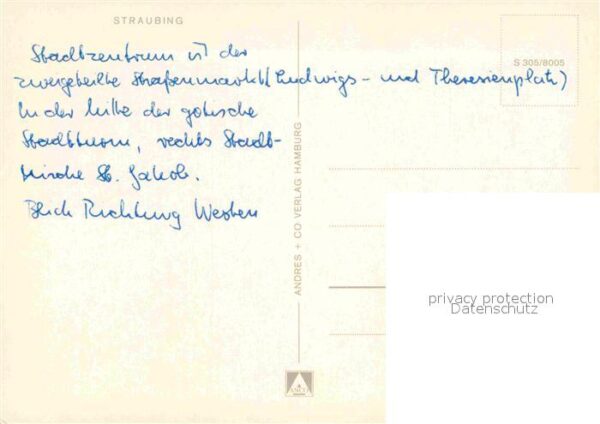 STRAUBING
Stadtzentrum ist der
zweigeteilte Straßenmarkt (Ludwigs- und Theresienplatz)
In der Mitte der gotische
Stadtturm, rechts Stadt-
kirche St. Jakob.
Blick Richtung Westen
S 305/8005
ANDRES + CO VERLAG HAMBURG
privacy protection
Datenschutz